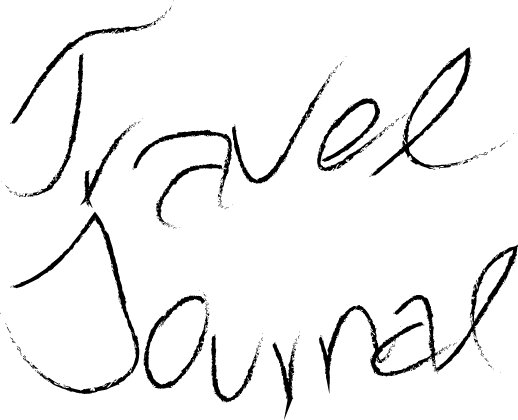 Travel
Journal